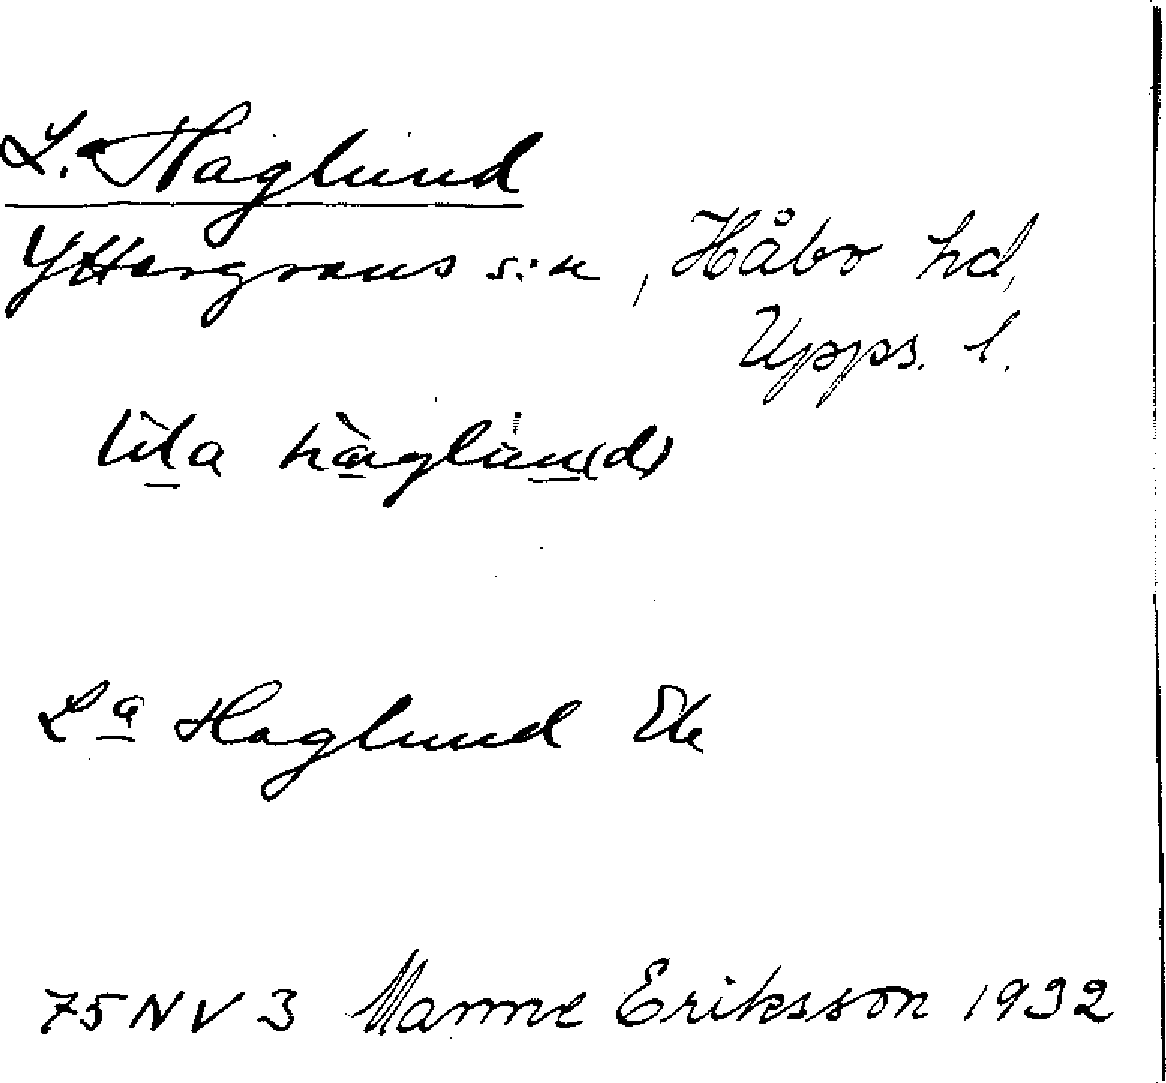 L.a Haglund
Yttergrans s:n, Håbo hd,
Upps. l.
lila haglun(d)
La Haglund Ek
75NV3 Manne Eriksson 1932